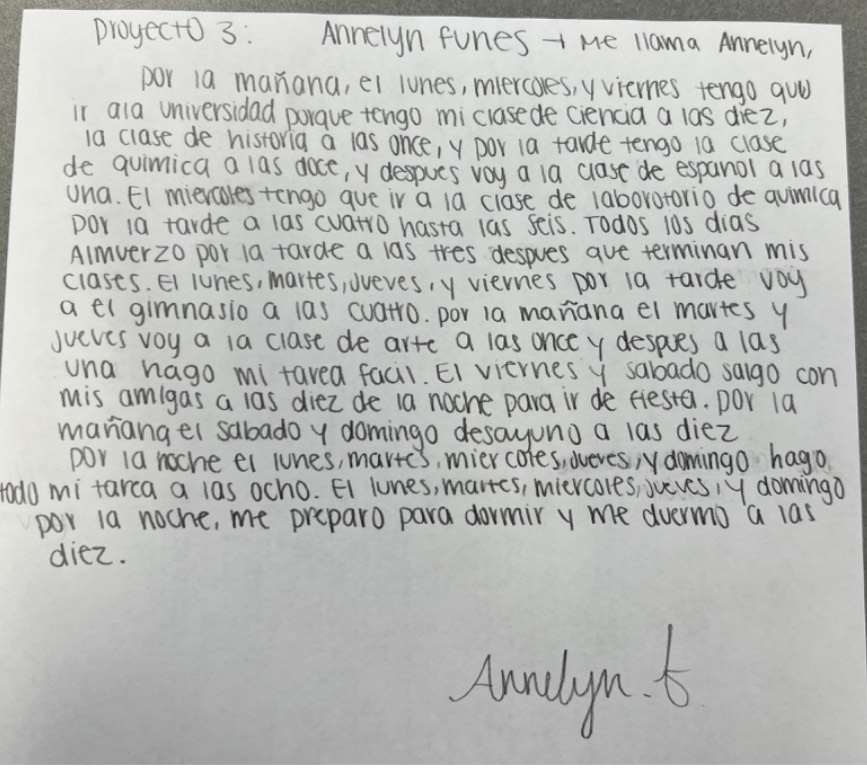 Proyecto 3: Annelyn funes → Me llama Annelyn,
por la mañana, el lunes, miercoles, y viernes tengo que
ir ala universidad porque tengo mi clase de ciencia a las diez,
la clase de historia a las once, y por la tarde tengo la clase
de quimica a las doce, y despues voy a la clase de espanol a las
una. El miercoles tengo que ir a la clase de laborotorio de quimica
por la tarde a las cuatro hasta las seis. Todos los dias
Almuerzo por la tarde a las tres despues que terminan mis
clases. El lunes, martes, jueves, y viernes por la tarde voy
a el gimnasio a las cuatro. por la mañana el martes y
jueves voy a la clase de arte a las once y despues a las
una hago mi tarea facil. El viernes y sabado salgo con
mis amigas a las diez de la noche para ir de fiesta. por la
mañana el sabado y domingo desayuno a las diez
por la noche el lunes, martes, miercoles, jueves, y domingo hago
todo mi tarea a las ocho. El lunes, martes, miercoles, jueves, y domingo
por la noche, me preparo para dormir y me duermo a las
diez.
Annelyn.f